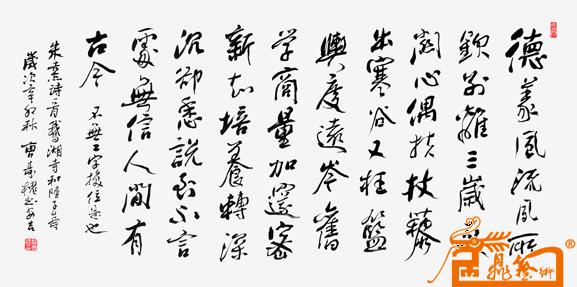 德義風流夙所
欽別離三歲更
關心偶扶杖藜
出寒谷又枉籃
輿度遠岑舊
学商量加邃密
新知培養轉深
沉卻愁說到不言
處無信人間有
古今 不無二字換位是也
朱熹詩一首鵝湖寺和陸子壽
歲次辛卯秋 曹壽